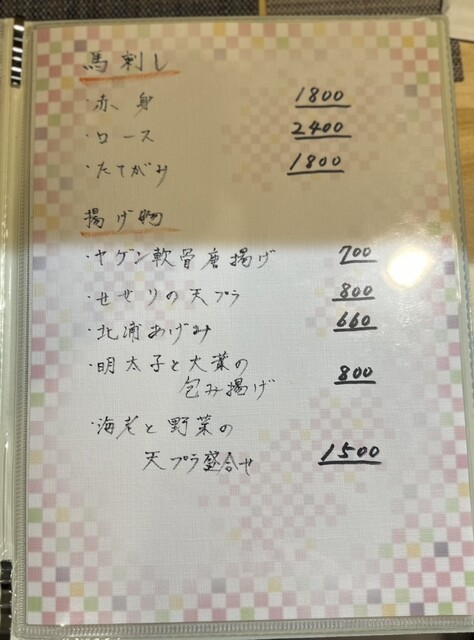 馬刺し
・赤身 1800
・ロース 2400
・たてがみ 1800
揚げ物
・ヤゲン軟骨唐揚げ 700
・せせりの天プラ 800
・北浦あげみ 660
・明太子と大葉の
包み揚げ 800
・海老と野菜の
天プラ盛合せ 1500